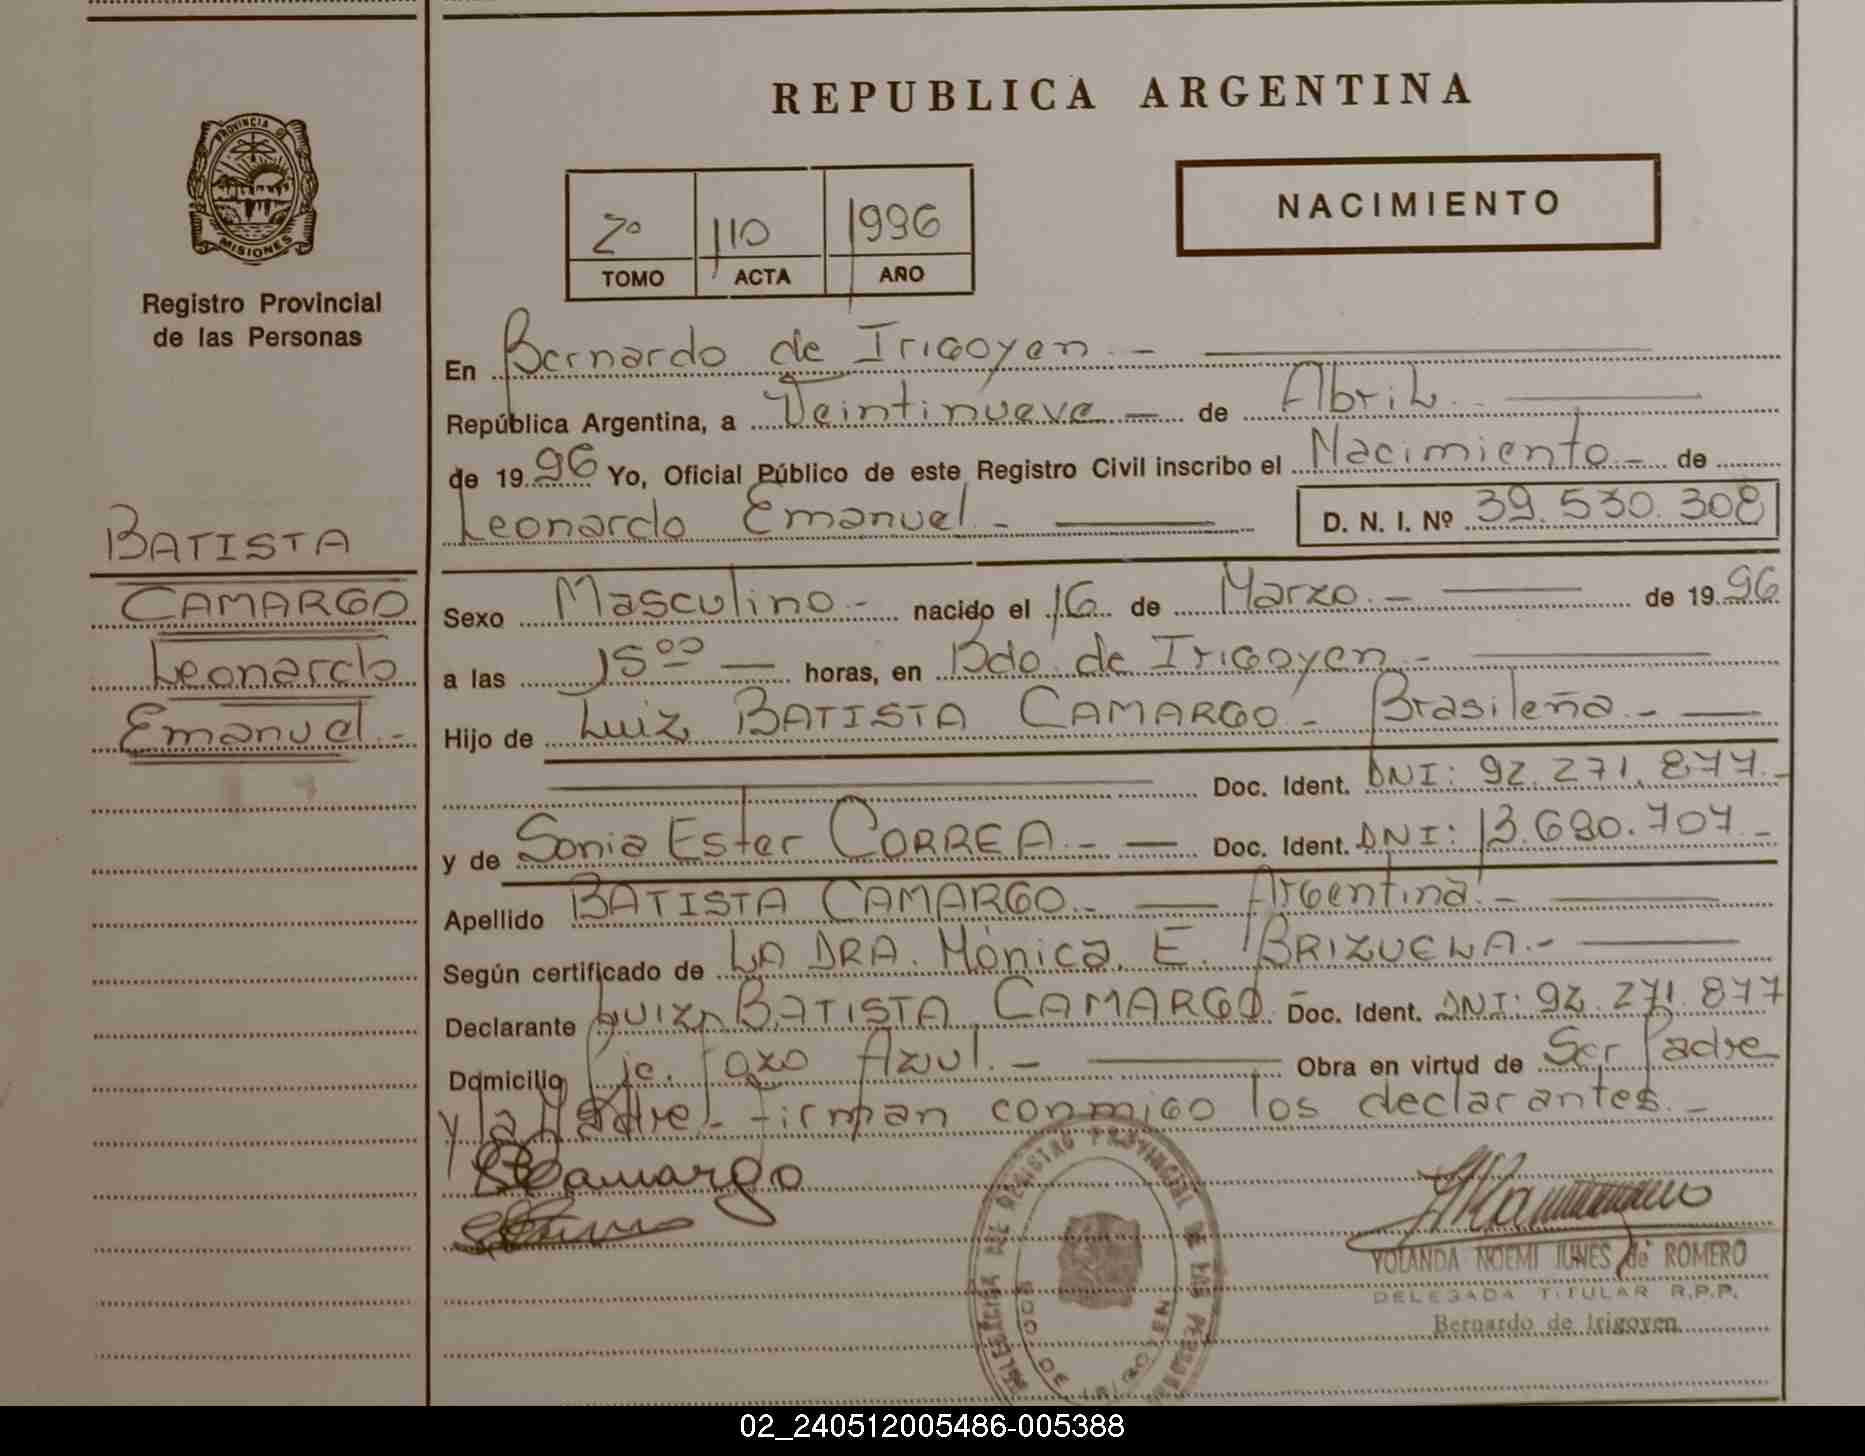 REPUBLICA ARGENTINA
PROVINCIA DE
MISIONES
Registro Provincial
de las Personas
2º 110 1996
TOMO ACTA AÑO
NACIMIENTO
BATISTA
CAMARGO
Leonardo
Emanuel.-
En Bernardo de Irigoyen.-
República Argentina, a Veintinueve — de Abril
de 1996 Yo, Oficial Público de este Registro Civil inscribo el Nacimiento.- de
Leonardo Emanuel.- D. N. I. Nº 39.530.308
Sexo Masculino.- nacido el 16 de Marzo.- de 1996
a las 15ºº — horas, en Bdo. de Irigoyen.-
Hijo de Luiz BATISTA CAMARGO.- Brasileña.-
Doc. Ident. DNI: 92.271.877.-
y de Sonia Ester CORREA.- Doc. Ident. DNI: 13.680.707.-
Apellido BATISTA CAMARGO.- Argentina.-
Según certificado de LA DRA. Mónica. E. BRIZUELA.-
Declarante Luiz BATISTA CAMARGO.- Doc. Ident. DNI: 92.271.877
Domicilio Pje. Pozo Azul.- Obra en virtud de Ser Padre
y la Madre.- firman conmigo los declarantes.-
Camargo
DELEGACION DEL REGISTRO PROVINCIAL DE LAS PERSONAS
BDO. DE IRIGOYEN
YOLANDA NOEMI JUNES de ROMERO
DELEGADA TITULAR R.P.P.
Bernardo de Irigoyen
02_240512005486-005388